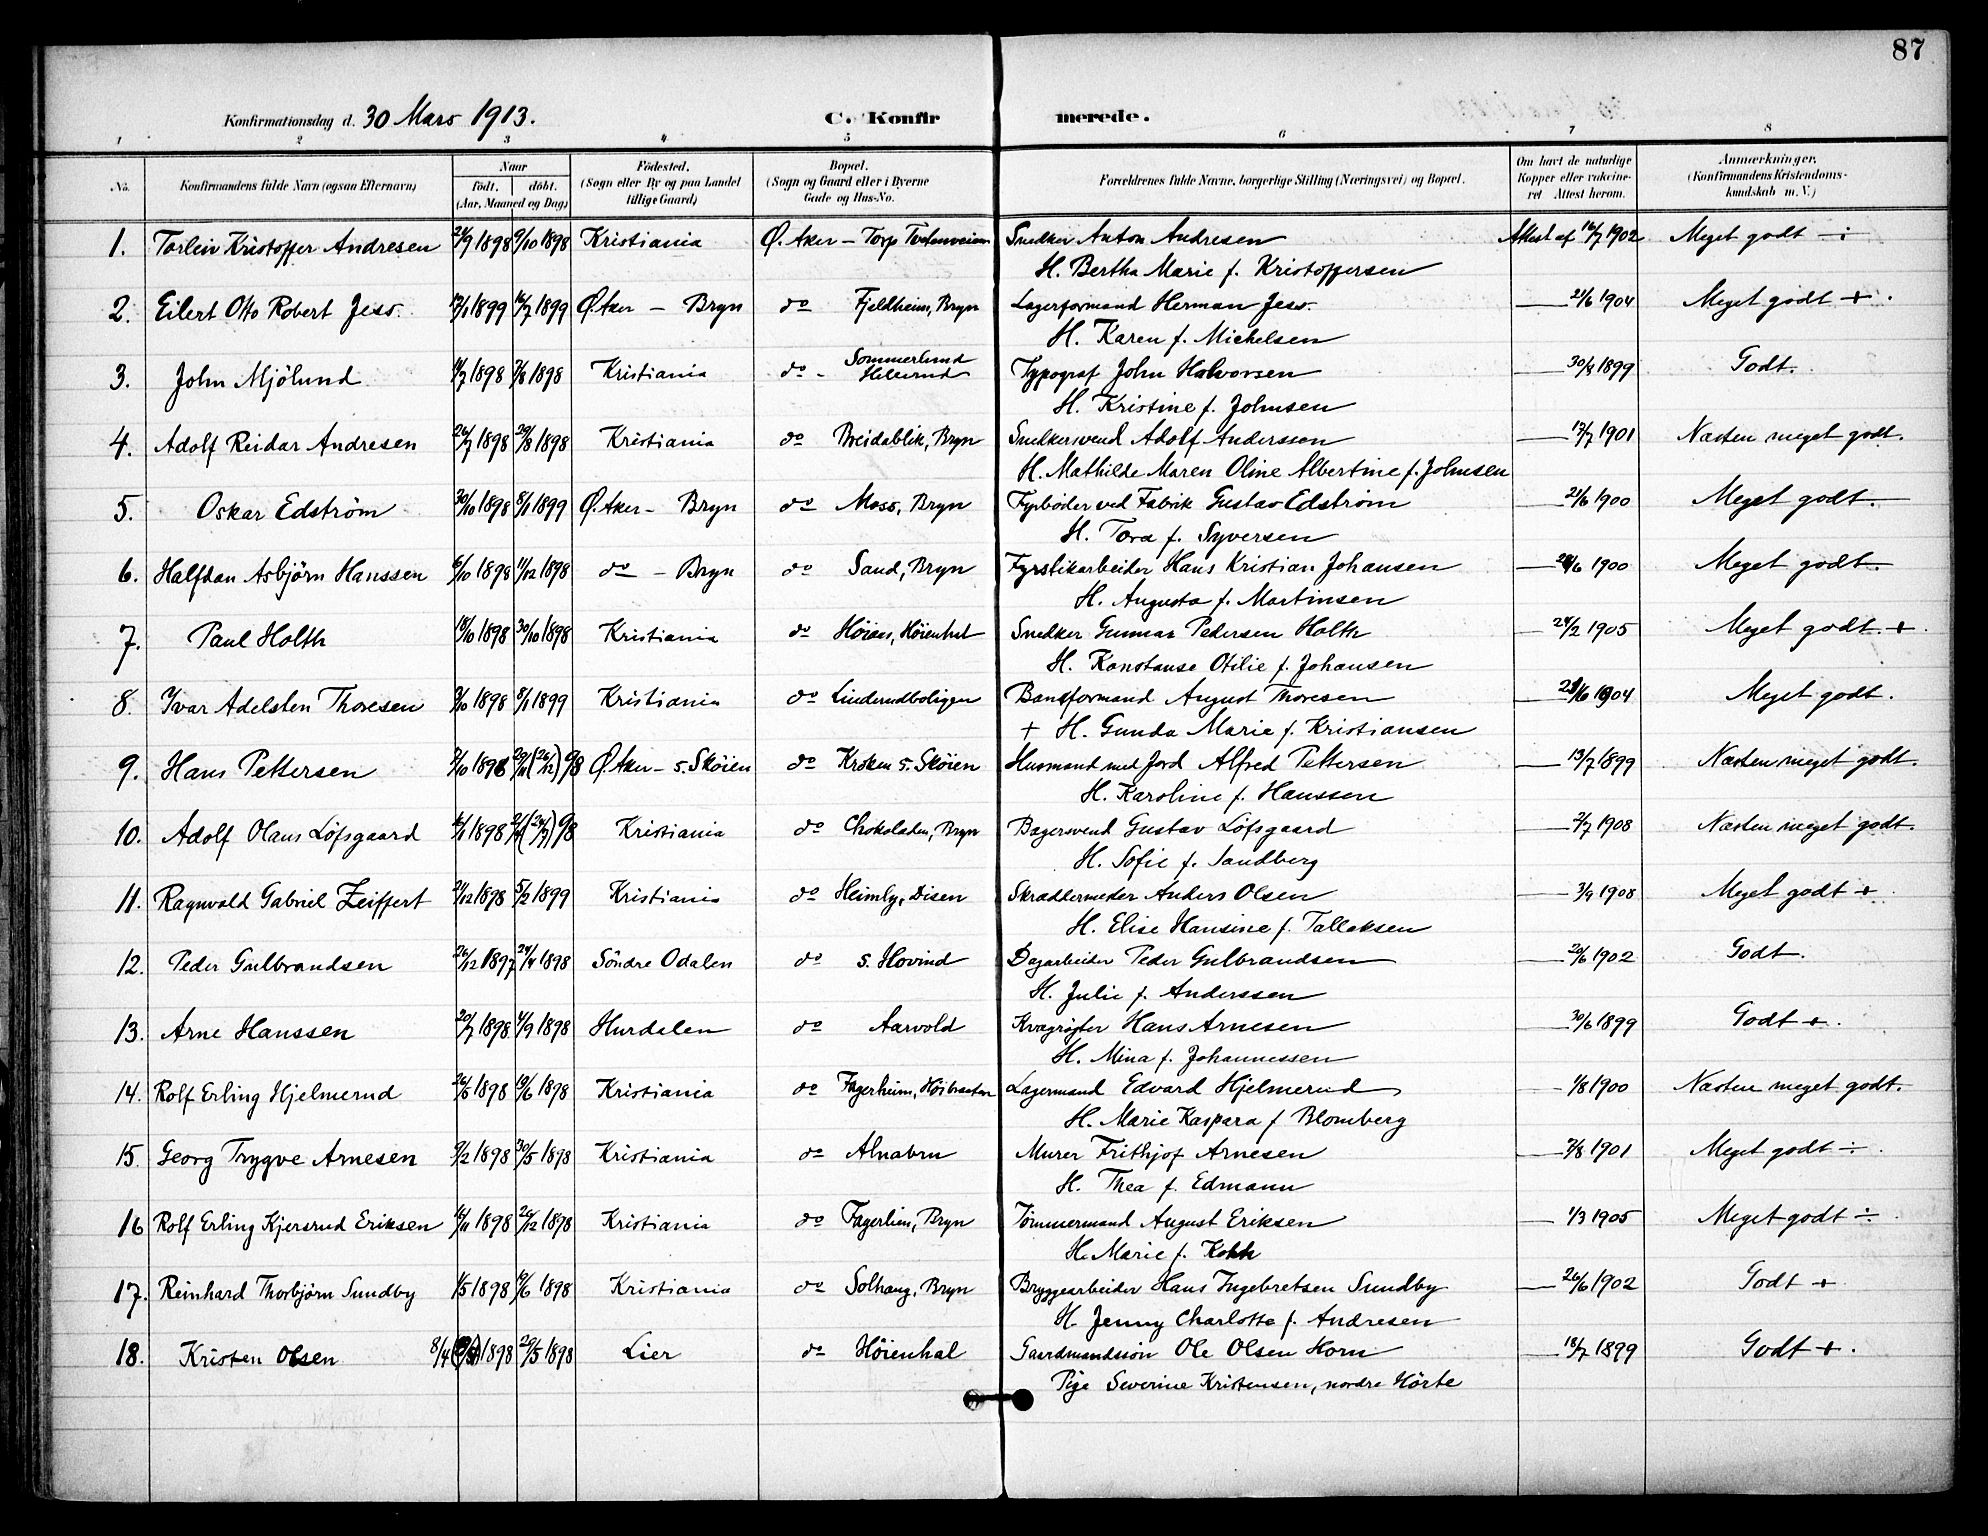 87
Konfirmationsdag d. 30 Mars 1913. C. Konfirmerede.
1 2 3 4 5 6 7 8
No. Konfirmandens fulde Navn (ogsaa Efternavn) Naar födt. döbt. (Aar, Maaned og Dag) Födested. (Sogn eller By og paa Landet tillige Gaard) Bopæl. (Sogn og Gaard eller i Byerne Gade og Hus-No. Forældrenes fulde Navne, borgerlige Stilling (Næringsvei) og Bopæl. Om havt de naturlige Kopper eller vakcineret Attest herom. Anmærkninger. (Konfirmandens Kristendomskundskab m. V.)
1. Torleiv Kristoffer Andresen 21/9 1898 9/10 1898 Kristiania Ø. Aker - Torp Tvetenveien Snedker Anton Andresen Attest af 16/7 1902 Meget godt ÷
H. Bertha Marie f. Kristoffersen
2. Eilert Otto Robert Jess. 1899 16/7 1899 Ø. Aker - Bryn do Fjeldheim, Bryn Lagerformand Herman Jess. — 21/6 1904 Meget godt +.
H. Karen f. Michelsen
3. John Mjölund 1898 7/8 1898 Kristiania do - Sommerlund Hellerud Typograf John Halvorsen — 30/8 1899 Godt.
H. Kristine f. Johnsen
4. Adolf Reidar Andresen 26/7 1898 29/8 1898 Kristiania do Breidablik, Bryn Snedkersvend Adolf Anderssen — 13/7 1901 Næsten meget godt.
H. Mathilde Maren Oline Albertine f. Johnsen
5. Oskar Edström 30/10 1898 8/1 1899 Ø. Aker - Bryn do Moss, Bryn Fyrböder ved Fabrik Gustav Edström — 21/6 1900 Meget godt.
H. Tora f. Syversen
6. Halfdan Asbjörn Hanssen 6/10 1898 11/12 1898 do - Bryn do Sand, Bryn Fyrstikarbeider Hans Kristian Johansen — 28/6 1900 Meget godt.
H. Augusta f. Martinsen
7. Paul Holth 18/10 1898 30/10 1898 Kristiania do Höiaas, Höienhal Snedker Gunnar Pedersen Holth — 24/2 1905 Meget godt. +.
H. Konstanse Otilie f. Johansen
8. Ivar Adelsten Thoresen 3/10 1898 8/1 1899 Kristiania do Linderudboliger Baneformand August Thoresen — /6 1904 Meget godt.
+ H. Gunda Marie f. Kristiansen
9. Hans Pettersen 2/10 1898 (26/12) 98 Ø. Aker - S. Sköien do Kroken S. Sköien Husmand med Jord Alfred Pettersen — 13/7 1899 Næsten meget godt.
H. Karoline f. Hanssen
10. Adolf Olaus Löfsgaard 1898 98 Kristiania do Chokoladen, Bryn Bagersvend Gustav Löfsgaard — 2/7 1908 Næsten meget godt.
H. Sofie f. Sandberg
11. Ragnvald Gabriel Zeiffert 21/12 1898 5/2 1899 Kristiania do Heimly, Disen Skræddermester Anders Olsen — 3/9 1908 Meget godt +.
H. Elise Hansine f. Tallaksen
12. Peder Gulbrandsen 26/12 1897 24/4 1898 Söndre Odalen do S. Hovind Dagarbeider Peder Gulbrandsen — 20/6 1902 Godt.
H. Julie f. Anderssen
13. Arne Hanssen 20/7 1898. 4/9 1898 Hurdalen do Aarvold Kvægrögter Hans Arnesen — 30/6 1899 Godt +.
H. Mina f. Johannessen
14. Rolf Erling Hjelmerud 26/5 1898 19/6 1898 Kristiania do Fagerheim, Höibraaten Lagermand Edvard Hjelmerud — 1/8 1900 Næsten meget godt.
H. Marie Kaspara f Blomberg
15. Georg Trygve Arnesen 9/2 1898 30/5 1898 Kristiania do Alnabru Murer Frithjof Arnesen — 7/8 1901 Meget godt ÷.
H. Thea f. Edmann
16 Rolf Erling Kjersrud Eriksen 16/11 1898 26/12 1898 Kristiania do Fagerlien, Bryn Tömmermand August Eriksen — 1/3 1905 Meget godt ÷.
H. Marie f. Kohh
17. Reinhard Thorbjörn Sundby 1/5 1898 19/6 1898 Kristiania do Solhaug, Bryn Bryggearbeider Hans Ingebretsen Sundby — 26/6 1902 Godt +.
H. Jenny Charlotte f. Andresen
18. Kristen Olsen 8/4 1898 20/5 1898 Lier do Höienhal Gaardmandssön Ole Olsen Horn — 18/7 1899 Godt +.
Pige Severine Kristensen, nordre Hörte